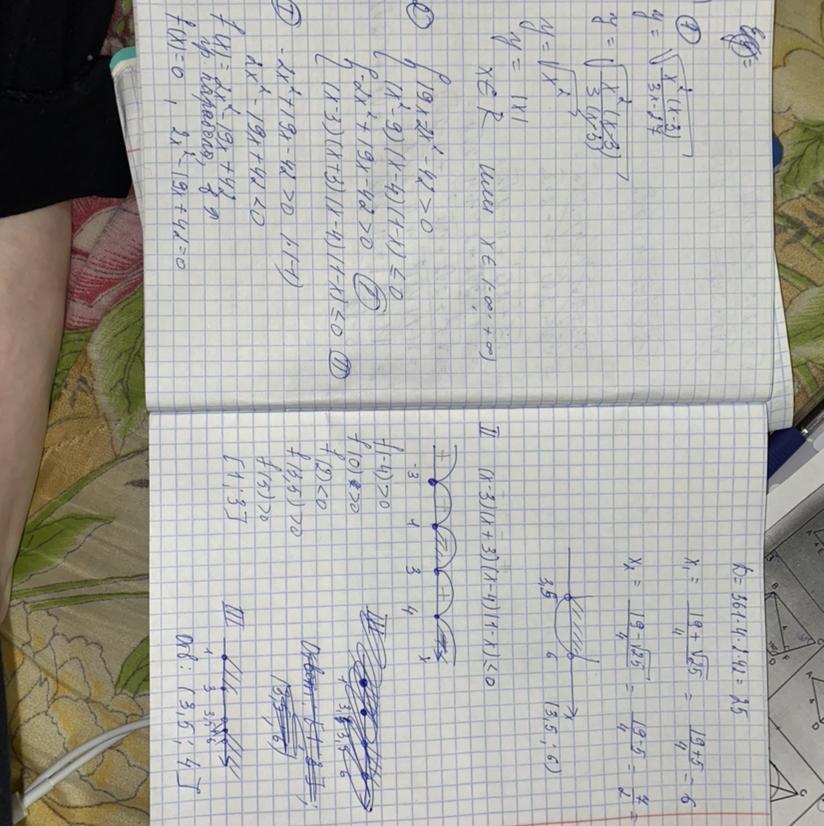 ①
y = √(x²(x-3)/(3x-9))
y = √(x²(x-3)/(3(x-3)))
y = √x²
y = |x|
x∈R или x∈(-∞; +∞)
{ 19x-2x²-42>0
(x²-9)(x-4)(1-x)≤0
{ -2x²+19x-42>0 Ⅰ
(x-3)(x+3)(x-4)(1-x)≤0 Ⅱ
Ⅰ -2x²+19x-42>0 |·(-1)
2x²-19x+42<0
f(x)=2x²-19x+42
f(x)=0, 2x²-19x+42=0
x₁ = (19+√25)/4 = (19+5)/4 = 6
x₂ = (19-√25)/4 = (19-5)/4 = 7/2 =
3,5 6 x (3,5; 6)
Ⅱ (x-3)(x+3)(x-4)(1-x)≤0
-3 1 3 4 x
f(-4)>0
f(2)<0
f(3,5)>0
f(5)>0
[1;3]
Ⅲ
1 3 3,5 6
Отв: (3,5; 4]